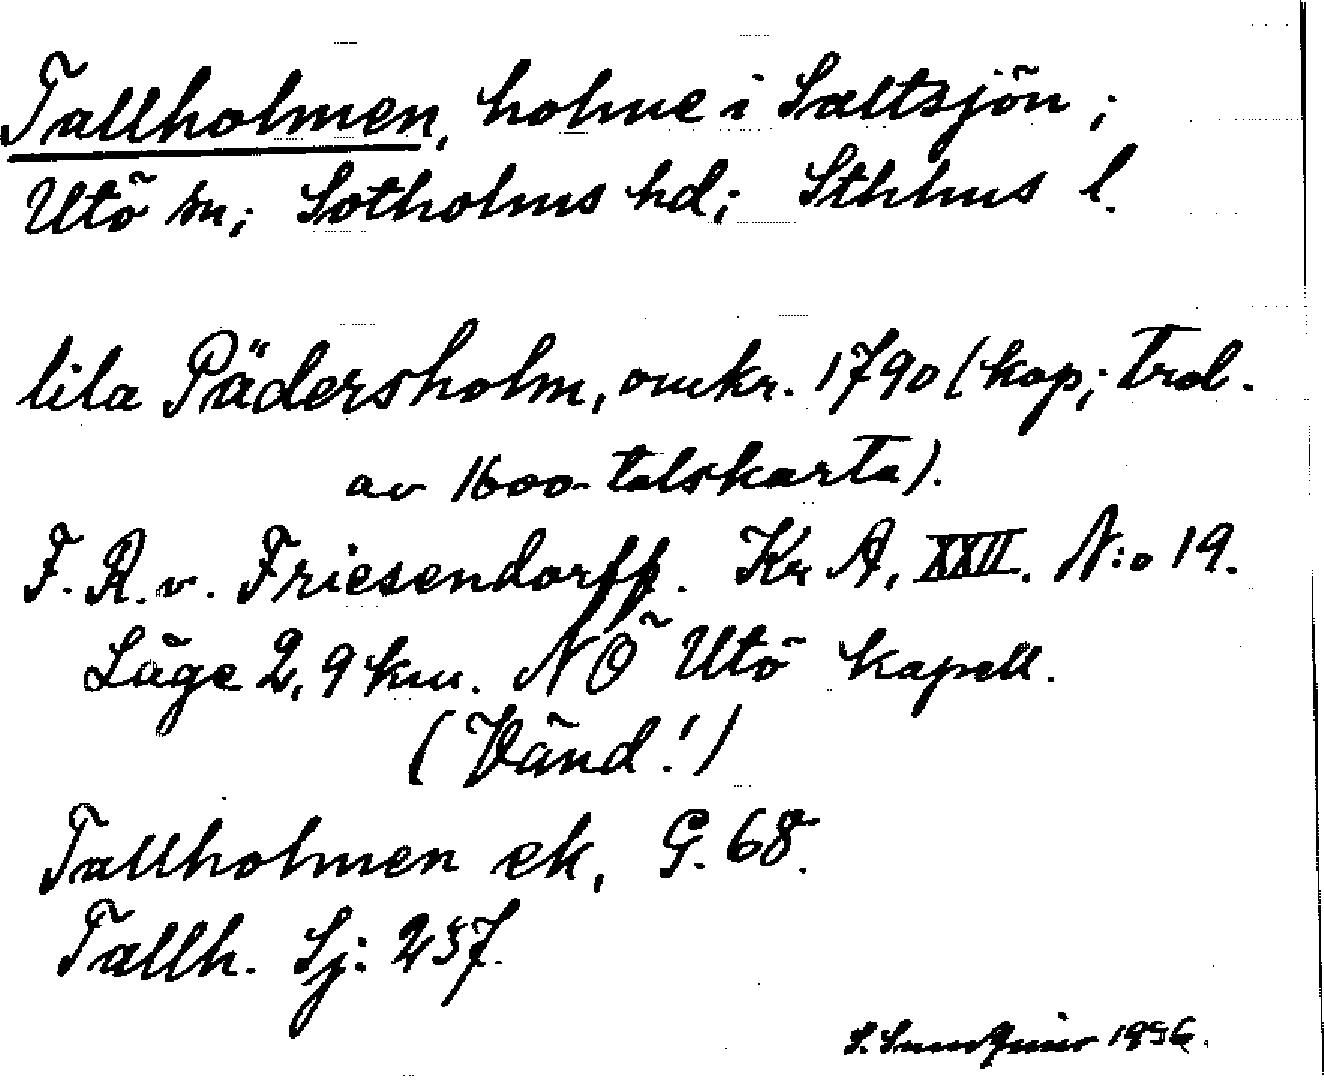 Tallholmen, holme i Saltsjön;
Utö sn; Sotholms hd; Sthlms l.
lila Pädersholm, omkr. 1790 (kop; trol.
av 1600-talskarta).
F. R. v. Friesendorff. Kr A, XXII. N:o 19.
Läge 2,9 km. NÖ Utö kapell.
(Vänd!)
Tallholmen ek, G. 68.
Tallh. Sj: 257.
S. 1956.